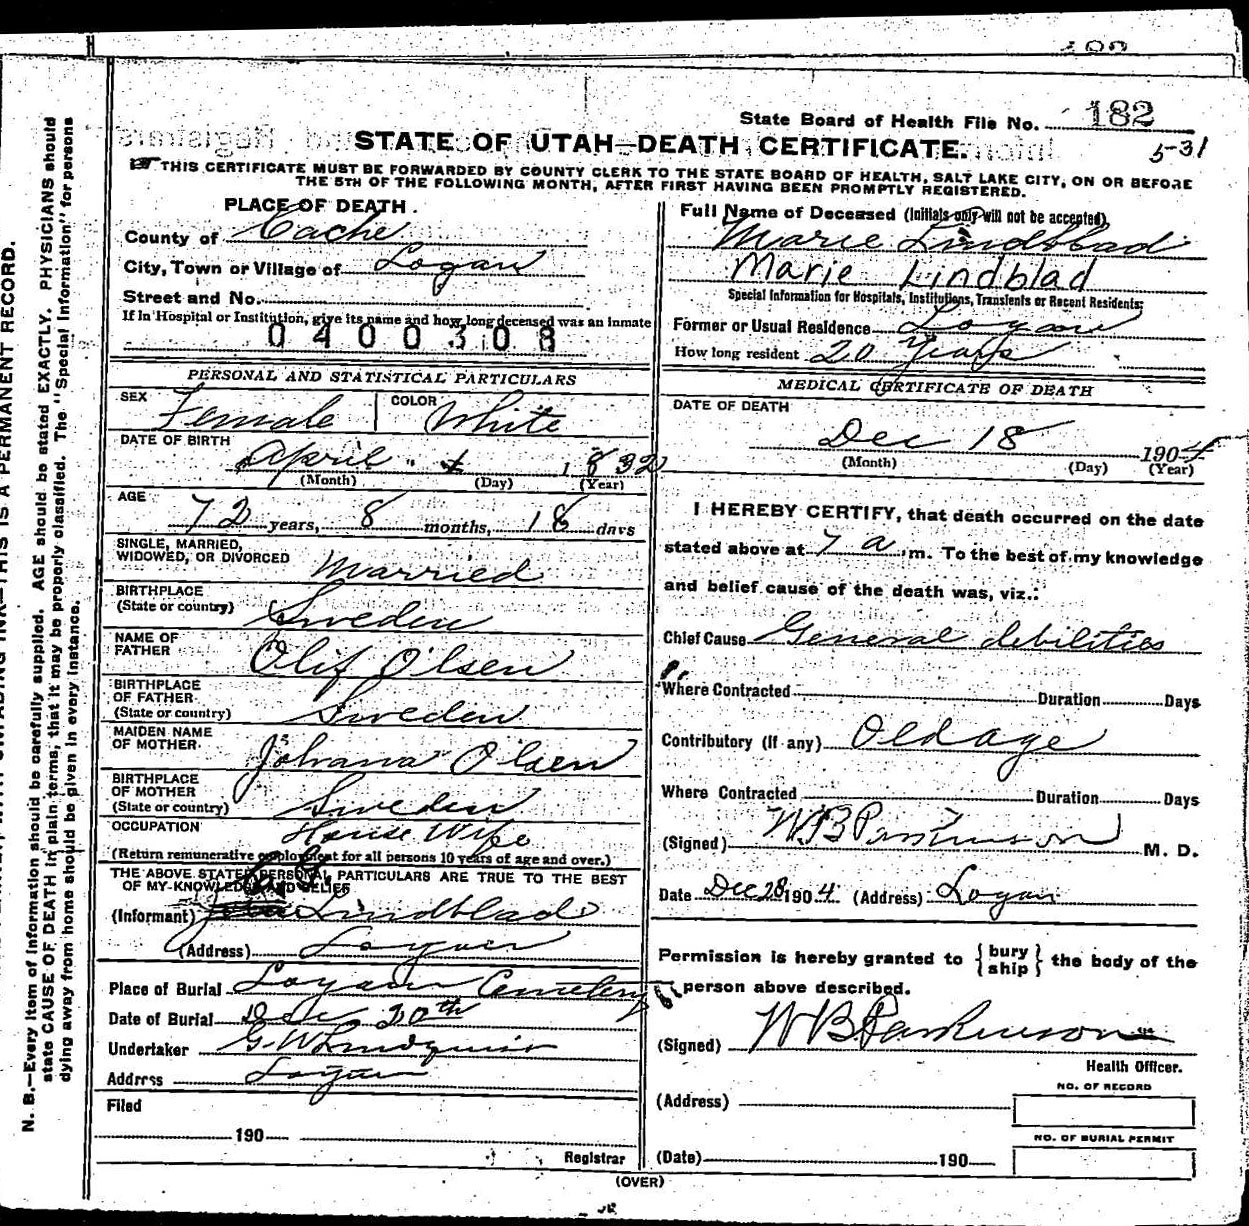 182
State Board of Health File No. 182
STATE OF UTAH—DEATH CERTIFICATE.
5-31
THIS CERTIFICATE MUST BE FORWARDED BY COUNTY CLERK TO THE STATE BOARD OF HEALTH, SALT LAKE CITY, ON OR BEFORE
THE 5TH OF THE FOLLOWING MONTH, AFTER FIRST HAVING BEEN PROMPTLY REGISTERED.
PLACE OF DEATH.
County of Cache
City, Town or Village of Logan
Street and No.
If in Hospital or Institution, give its name and how long deceased was an inmate
0400308
PERSONAL AND STATISTICAL PARTICULARS
SEX Female COLOR White
DATE OF BIRTH
April 1832
(Month) (Day) (Year)
AGE
72 years, 8 months, 18 days
SINGLE, MARRIED,
WIDOWED, OR DIVORCED Married
BIRTHPLACE
(State or country) Sweden
NAME OF
FATHER Olif Olsen
BIRTHPLACE
OF FATHER
(State or country) Sweden
MAIDEN NAME
OF MOTHER Johana Olsen
BIRTHPLACE
OF MOTHER
(State or country) Sweden
OCCUPATION House Wife
(Return remunerative employment for all persons 10 years of age and over.)
THE ABOVE STATED PERSONAL PARTICULARS ARE TRUE TO THE BEST
OF MY KNOWLEDGE AND BELIEF
(Informant) Lindblad
(Address) Logan
Place of Burial Logan Cemetery
Date of Burial Dec 20th
Undertaker G. W. Lindquist
Address Logan
Filed
190
Registrar
Full Name of Deceased (Initials only will not be accepted)
Marie Lindblad
Marie Lindblad
Special Information for Hospitals, Institutions, Transients or Recent Residents:
Former or Usual Residence Logan
How long resident 20 Years
MEDICAL CERTIFICATE OF DEATH
DATE OF DEATH
Dec 18 1904
(Month) (Day) (Year)
I HEREBY CERTIFY, that death occurred on the date
stated above at 7 a. m. To the best of my knowledge
and belief cause of the death was, viz.:
Chief Cause General debilities
Where Contracted Duration Days
Contributory (If any) Old age
Where Contracted Duration Days
(Signed) W B Parkinson M. D.
Date Dec 28 1904 (Address) Logan
Permission is hereby granted to {bury
ship} the body of the
person above described.
(Signed) W B Parkinson
Health Officer.
NO. OF RECORD
(Address)
NO. OF BURIAL PERMIT
(Date) 190
(OVER)
N. B.—Every item of information should be carefully supplied. AGE should be stated EXACTLY. PHYSICIANS should
state CAUSE OF DEATH in plain terms, that it may be properly classified. The "Special Information" for persons
dying away from home should be given in every instance.
THIS IS A PERMANENT RECORD.